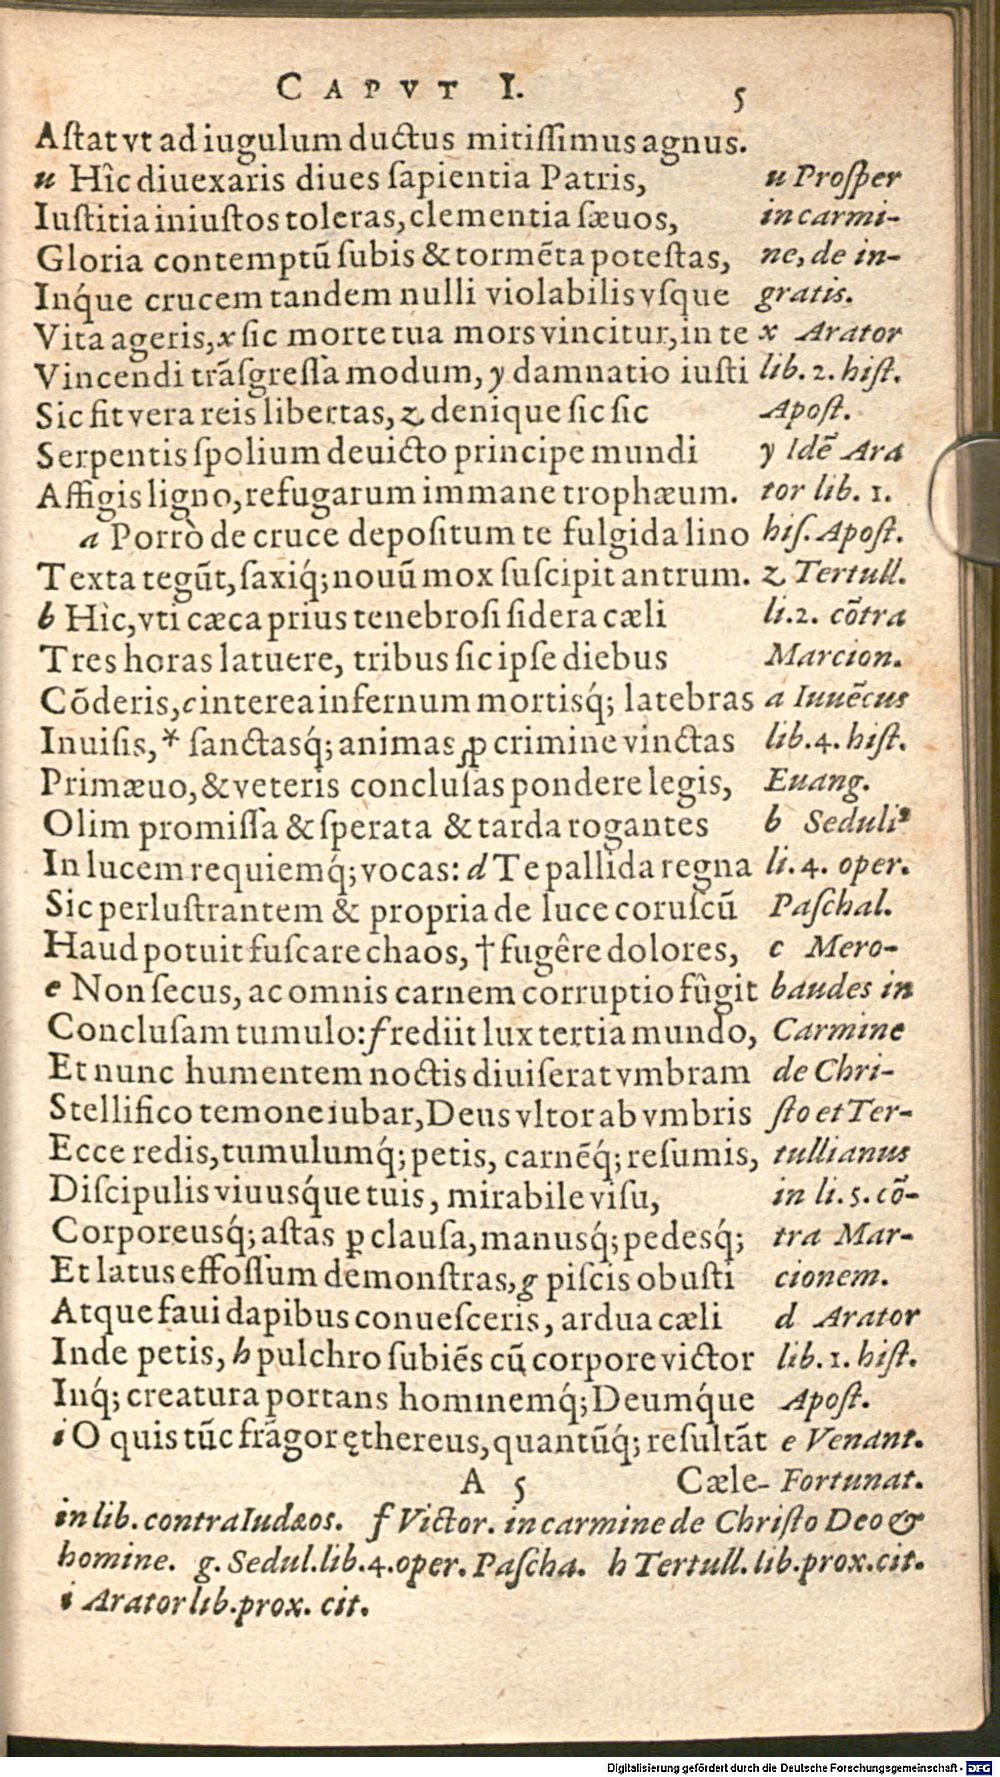 CAPVT I. 5
Aſtat vt ad iugulum ductus mitiſſimus agnus.
u Hîc diuexaris diues ſapientia Patris,
Iuſtitia iniuſtos toleras, clementia ſæuos,
Gloria contemptū ſubis & tormēta poteſtas,
Inq́ue crucem tandem nulli violabilis vſque
Vita ageris, x ſic morte tua mors vincitur, in te
Vincendi trāſgreſſa modum, y damnatio iuſti
Sic fit vera reis libertas, z denique ſic ſic
Serpentis ſpolium deuicto principe mundi
Affigis ligno, refugarum immane trophæum.
a Porrò de cruce depoſitum te fulgida lino
Texta tegūt, ſaxiq́; nouū mox ſuſcipit antrum.
b Hîc, vti cæca prius tenebroſi ſidera cæli
Tres horas latuere, tribus ſic ipſe diebus
Cōderis, c interea infernum mortisq́; latebras
Inuiſis, * ſanctasq́; animas ꝓ crimine vinctas
Primæuo, & veteris concluſas pondere legis,
Olim promiſſa & ſperata & tarda rogantes
In lucem requiemq́; vocas: d Te pallida regna
Sic perluſtrantem & propria de luce coruſcū
Haud potuit fuſcare chaos, † fugêre dolores,
e Non ſecus, ac omnis carnem corruptio fûgit
Concluſam tumulo: f rediit lux tertia mundo,
Et nunc humentem noctis diuiſerat vmbram
Stellifico temone iubar, Deus vltor ab vmbris
Ecce redis, tumulumq́; petis, carnēq́; reſumis,
Diſcipulis viuusq́ue tuis, mirabile viſu,
Corporeusq́; aſtas ꝑ clauſa, manusq́; pedesq́;
Et latus effoſſum demonſtras, g piſcis obuſti
Atque faui dapibus conueſceris, ardua cæli
Inde petis, h pulchro ſubiēs cū corpore victor
Inq́; creatura portans hominemq́; Deumq́ue
i O quis tūc frāgor ęthereus, quantūq́; reſultāt
A 5 Cæle-
u Proſper
in carmi-
ne, de in-
gratis.
x Arator
lib. 2. hiſt.
Apoſt.
y Idē Ara
tor lib. 1.
hiſ. Apoſt.
z Tertull.
li. 2. cōtra
Marcion.
a Iuuēcus
lib. 4. hiſt.
Euang.
b Seduliꝰ
li. 4. oper.
Paſchal.
c Mero-
baudes in
Carmine
de Chri-
ſto et Ter-
tullianus
in li. 5. cō-
tra Mar-
cionem.
d Arator
lib. 1. hiſt.
Apoſt.
e Venant.
Fortunat.
in lib. contra Iudæos. f Victor. in carmine de Chriſto Deo &
homine. g. Sedul. lib. 4. oper. Paſcha. h Tertull. lib. prox. cit.
i Arator lib. prox. cit.
Digitalisierung gefördert durch die Deutsche Forschungsgemeinschaft - DFG